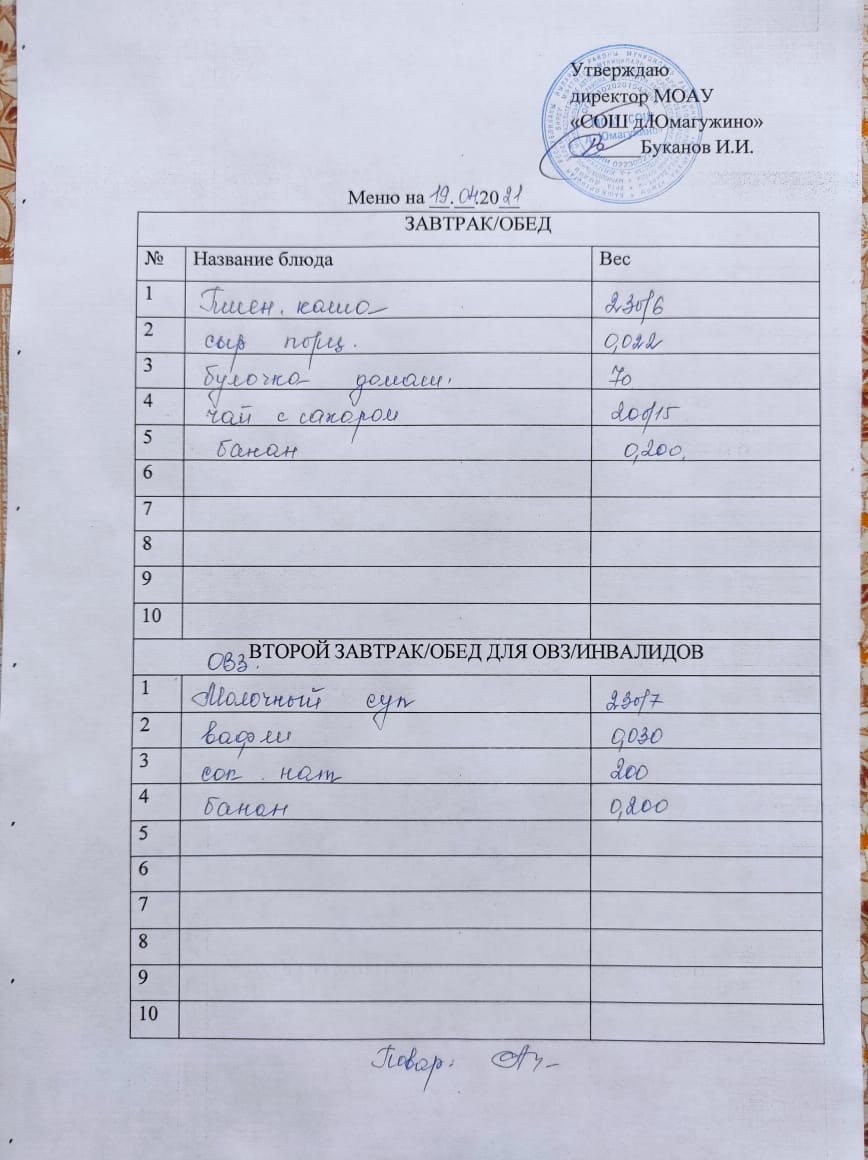 Утверждаю
директор МОАУ
«СОШ д.Юмагужино»
Буканов И.И.
Меню на 19.04.2021
ЗАВТРАК/ОБЕД
№ Название блюда Вес
1 Пшен. каша 230/6
2 сыр порц. 0,022
3 булочка домаш. 70
4 чай с сахаром 200/15
5 банан 0,200.
6
7
8
9
10
ВТОРОЙ ЗАВТРАК/ОБЕД ДЛЯ ОВЗ/ИНВАЛИДОВ
ОВЗ.
1 Молочный суп 230/7
2 вафли 0,030
3 сок нат 200
4 банан 0,200
5
6
7
8
9
10
Повар: